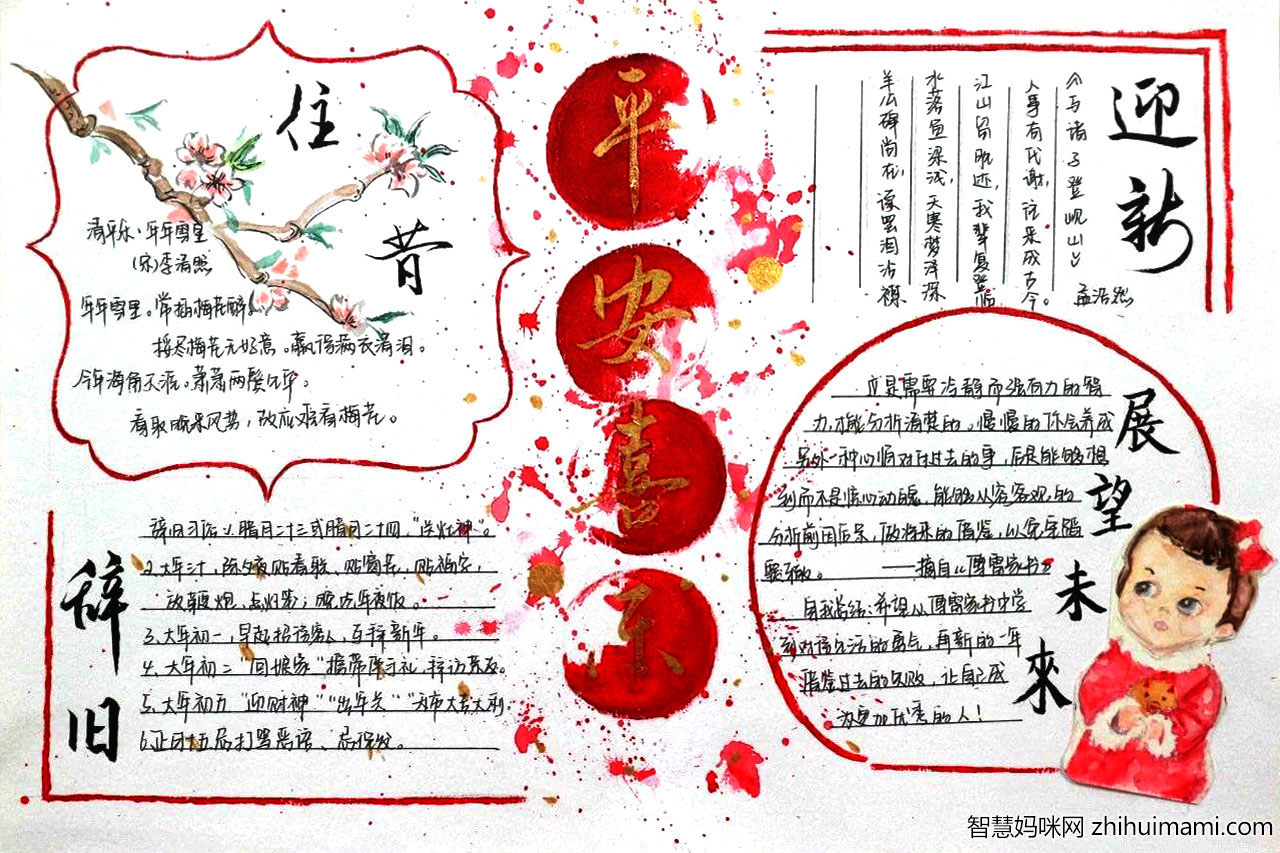 住昔
清平乐·年年雪里
(宋)李清照
年年雪里。常插梅花醉。
挼尽梅花无好意。赢得满衣清泪。
今年海角天涯。萧萧两鬓生华。
看取晚来风势，故应难看梅花。
平安喜乐
迎新
《与诸子登岘山》
孟浩然
人事有代谢，往来成古今。
江山留胜迹，我辈复登临
水落鱼梁浅，天寒梦泽深
羊公碑尚在，读罢泪沾襟
辞旧
辞旧习俗：1.腊月二十三或腊月二十四，"送灶神"。
2.大年三十，除夕夜贴春联、贴窗花、贴福字，
放鞭炮，点灯笼；晚吃年夜饭。
3.大年初一，早起招待客人，互拜新年。
4.大年初二"回娘家"携带伴手礼，拜访亲友。
5.大年初五"迎财神""出年关"
6.正月十五
展望未來
应是需要冷静而强有力的智
力，才能分析清楚的。慢慢的你会养成
另外一种心情对付过去的事，后是能够想
到而不是惊心动魄，能够从客客观的
分析前因后果，做将来的借鉴，以免重蹈
覆辙。 ——摘自《傅雷家书》
自我总结：希望从傅雷家书中学
到对待生活的勇气，再新的一年
借鉴过去的失败，让自己成
为更加优秀的人！
智慧妈咪网 zhihuimami.com